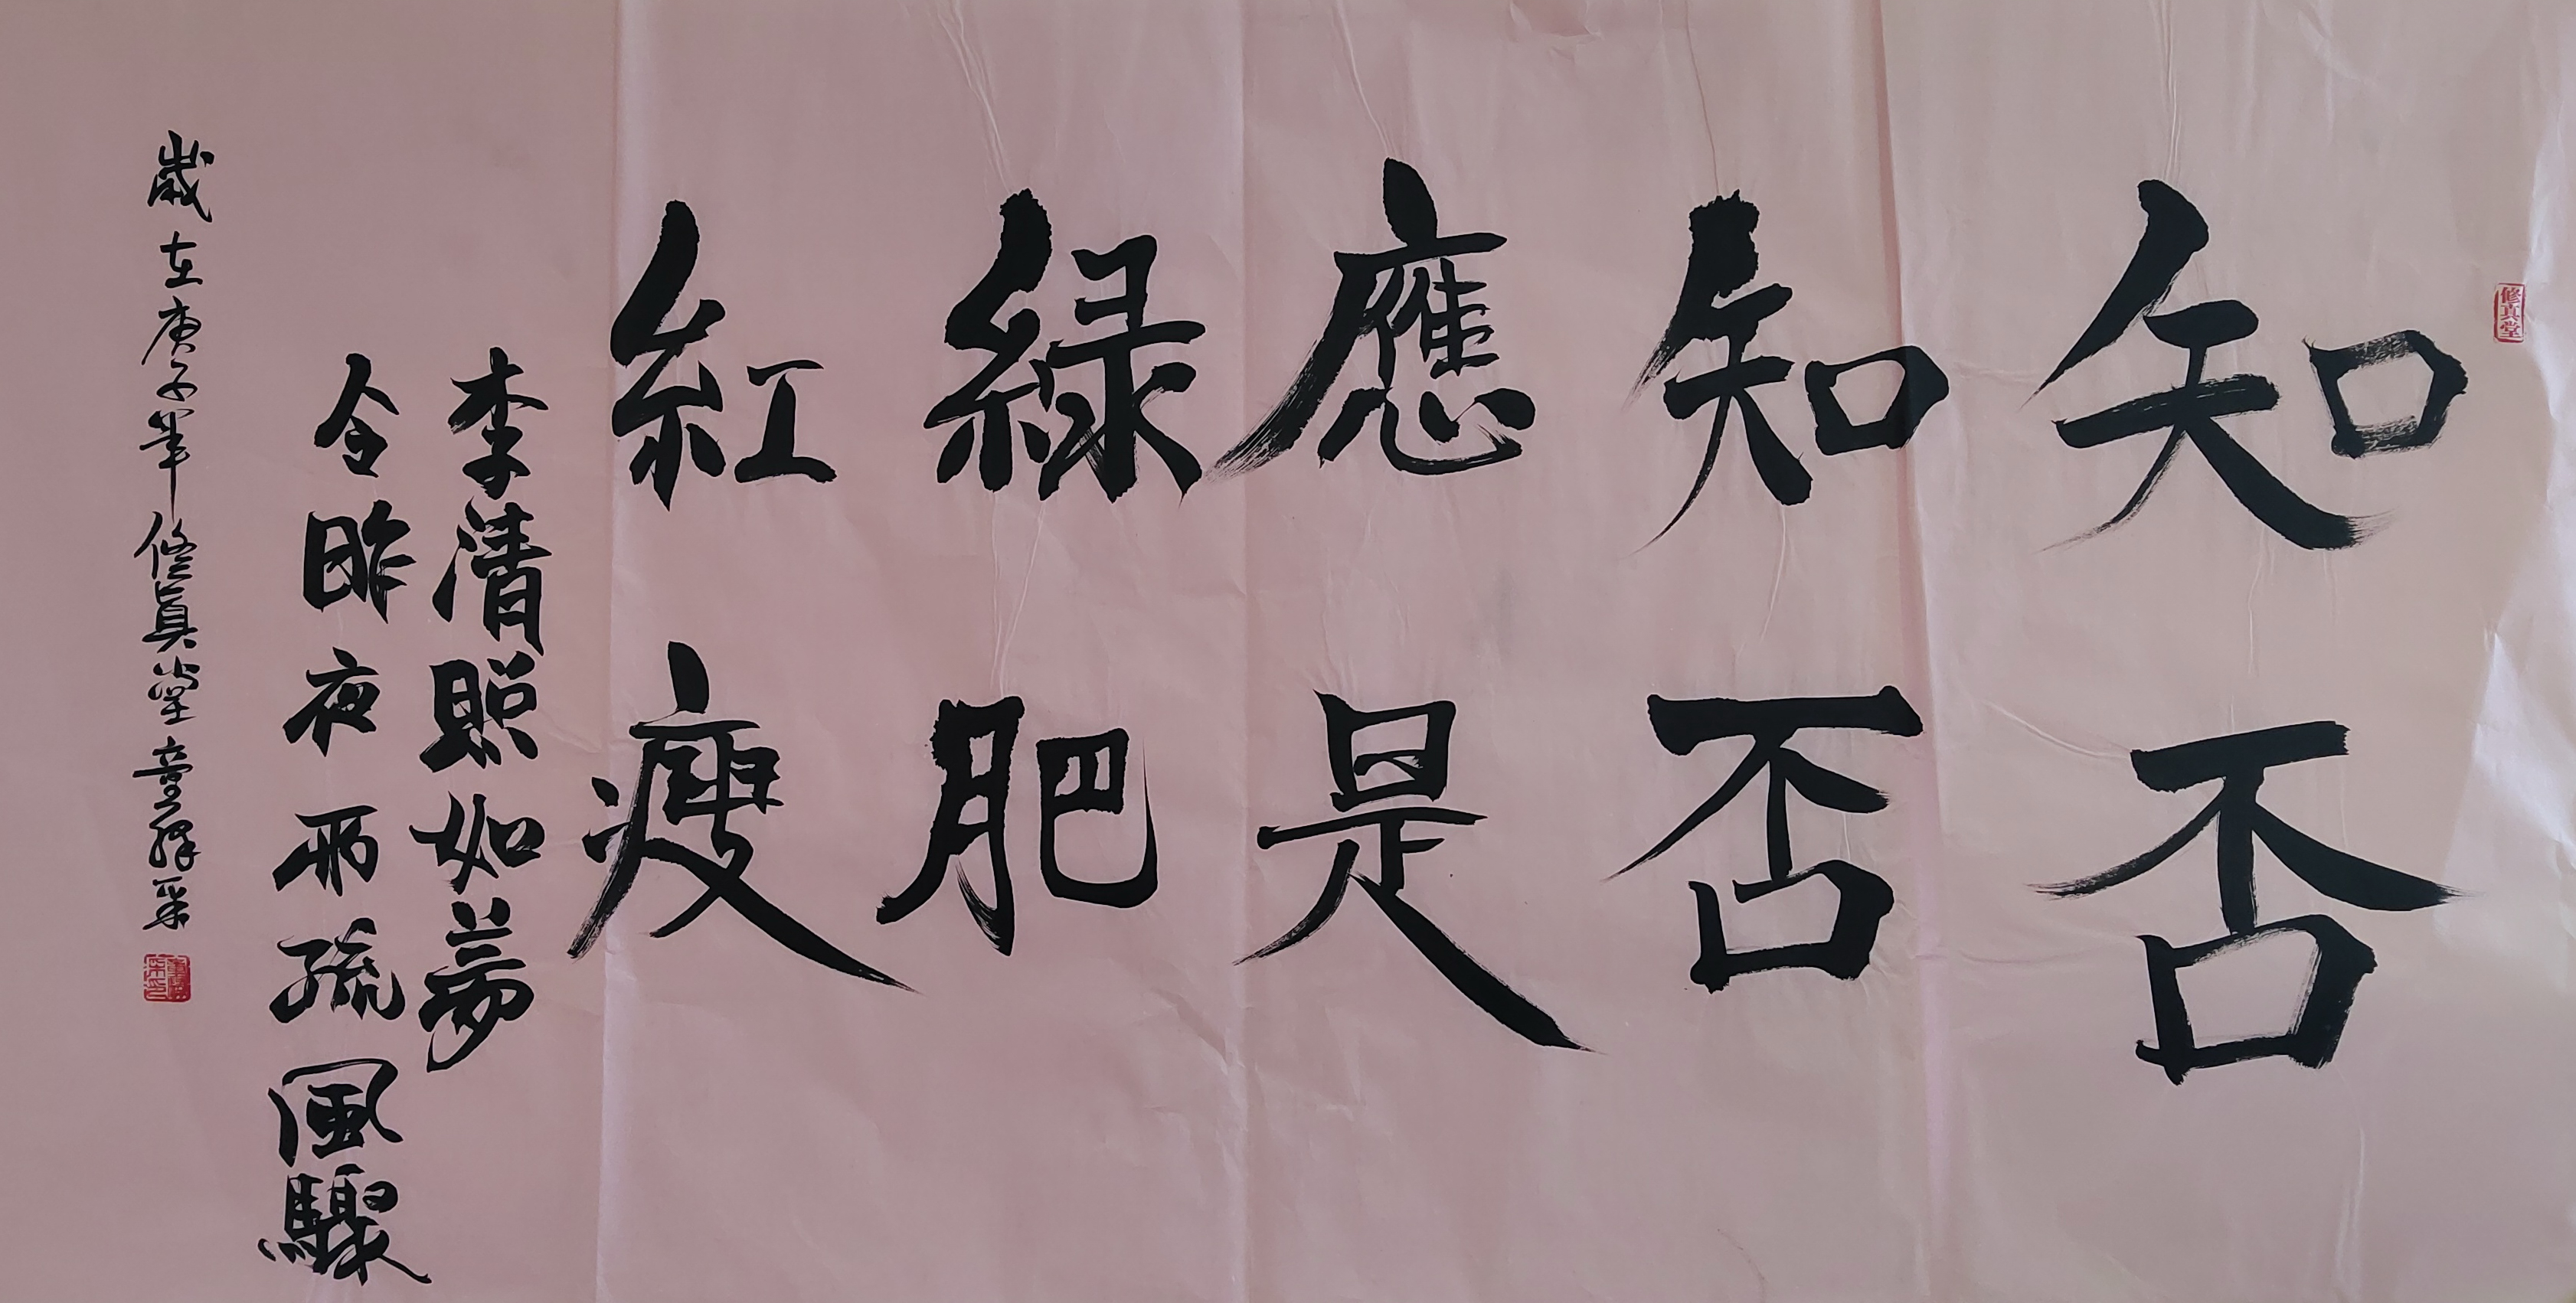 修真堂
知否
知否
應是
綠肥
紅瘦
李清照如夢
令昨夜雨疏風驟
歲在庚子年修真堂童祥采